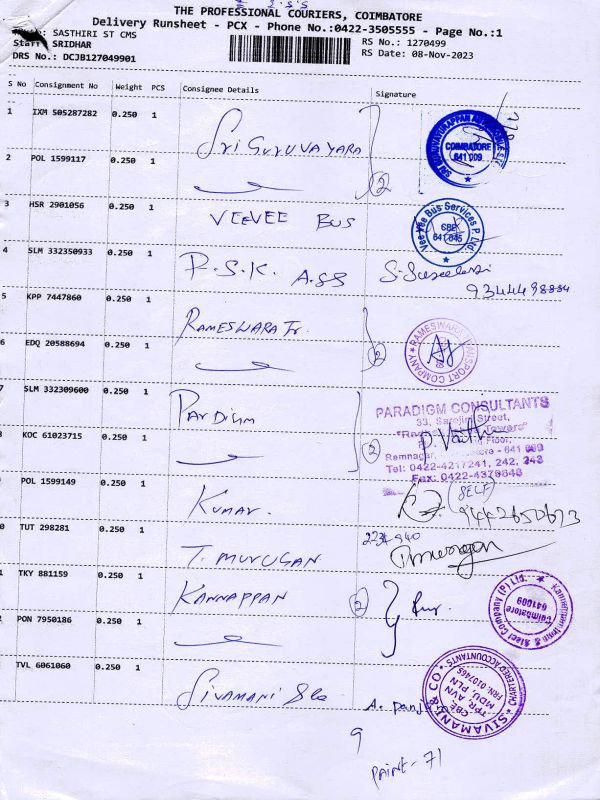 THE PROFESSIONAL COURIERS, COIMBATORE
Delivery Runsheet - PCX - Phone No.:0422-3505555 - Page No.:1
SASTHIRI ST CMS
RS No.: 1270499
Staff SRIDHAR
RS Date: 08-Nov-2023
DRS No.: DCJB127049901
S No Consignment No Weight PCS Consignee Details Signature
1 IXM 505287282 0.250 1 Sri Guruvayara
COIMBATORE
641 009
2 POL 1599117 0.250 1
2
3 HSR 2901056 0.250 1 VEEVEE BUS
Vee Vee Bus Services P. Ltd.
CBE
641 045
4 SLM 332350933 0.250 1 R.S.K. Ass
9344498884
5 KPP 7447860 0.250 1 RAMESWARA Tr.
RAMESWARA TRANSPORT COMPANY
6 EDQ 20588694 0.250 1
2
7 SLM 332309600 0.250 1 Pardigm
PARADIGM CONSULTANTS
33, Sarojini Street,
Ramnagar, Coimbatore - 641 009
Tel: 0422-4217241, 242, 243
Fax: 0422-4379643
KOC 61023715 0.250 1
2
POL 1599149 0.250 1 Kumar.
(SELF)
9442650673
0 TUT 298281 0.250 1 T. MURUGAN
TKY 881159 0.250 1 KANNAPPAN
2
Kannappan Iron & Steel Company (P) Ltd.
Coimbatore
641009
PON 7950186 0.250 1
TVL 6061060 0.250 1 Sivamani &co
SIVAMANI & CO
CHARTERED ACCOUNTANTS
CBE AVN
TPR PLN
MDU
9
Paint - 71